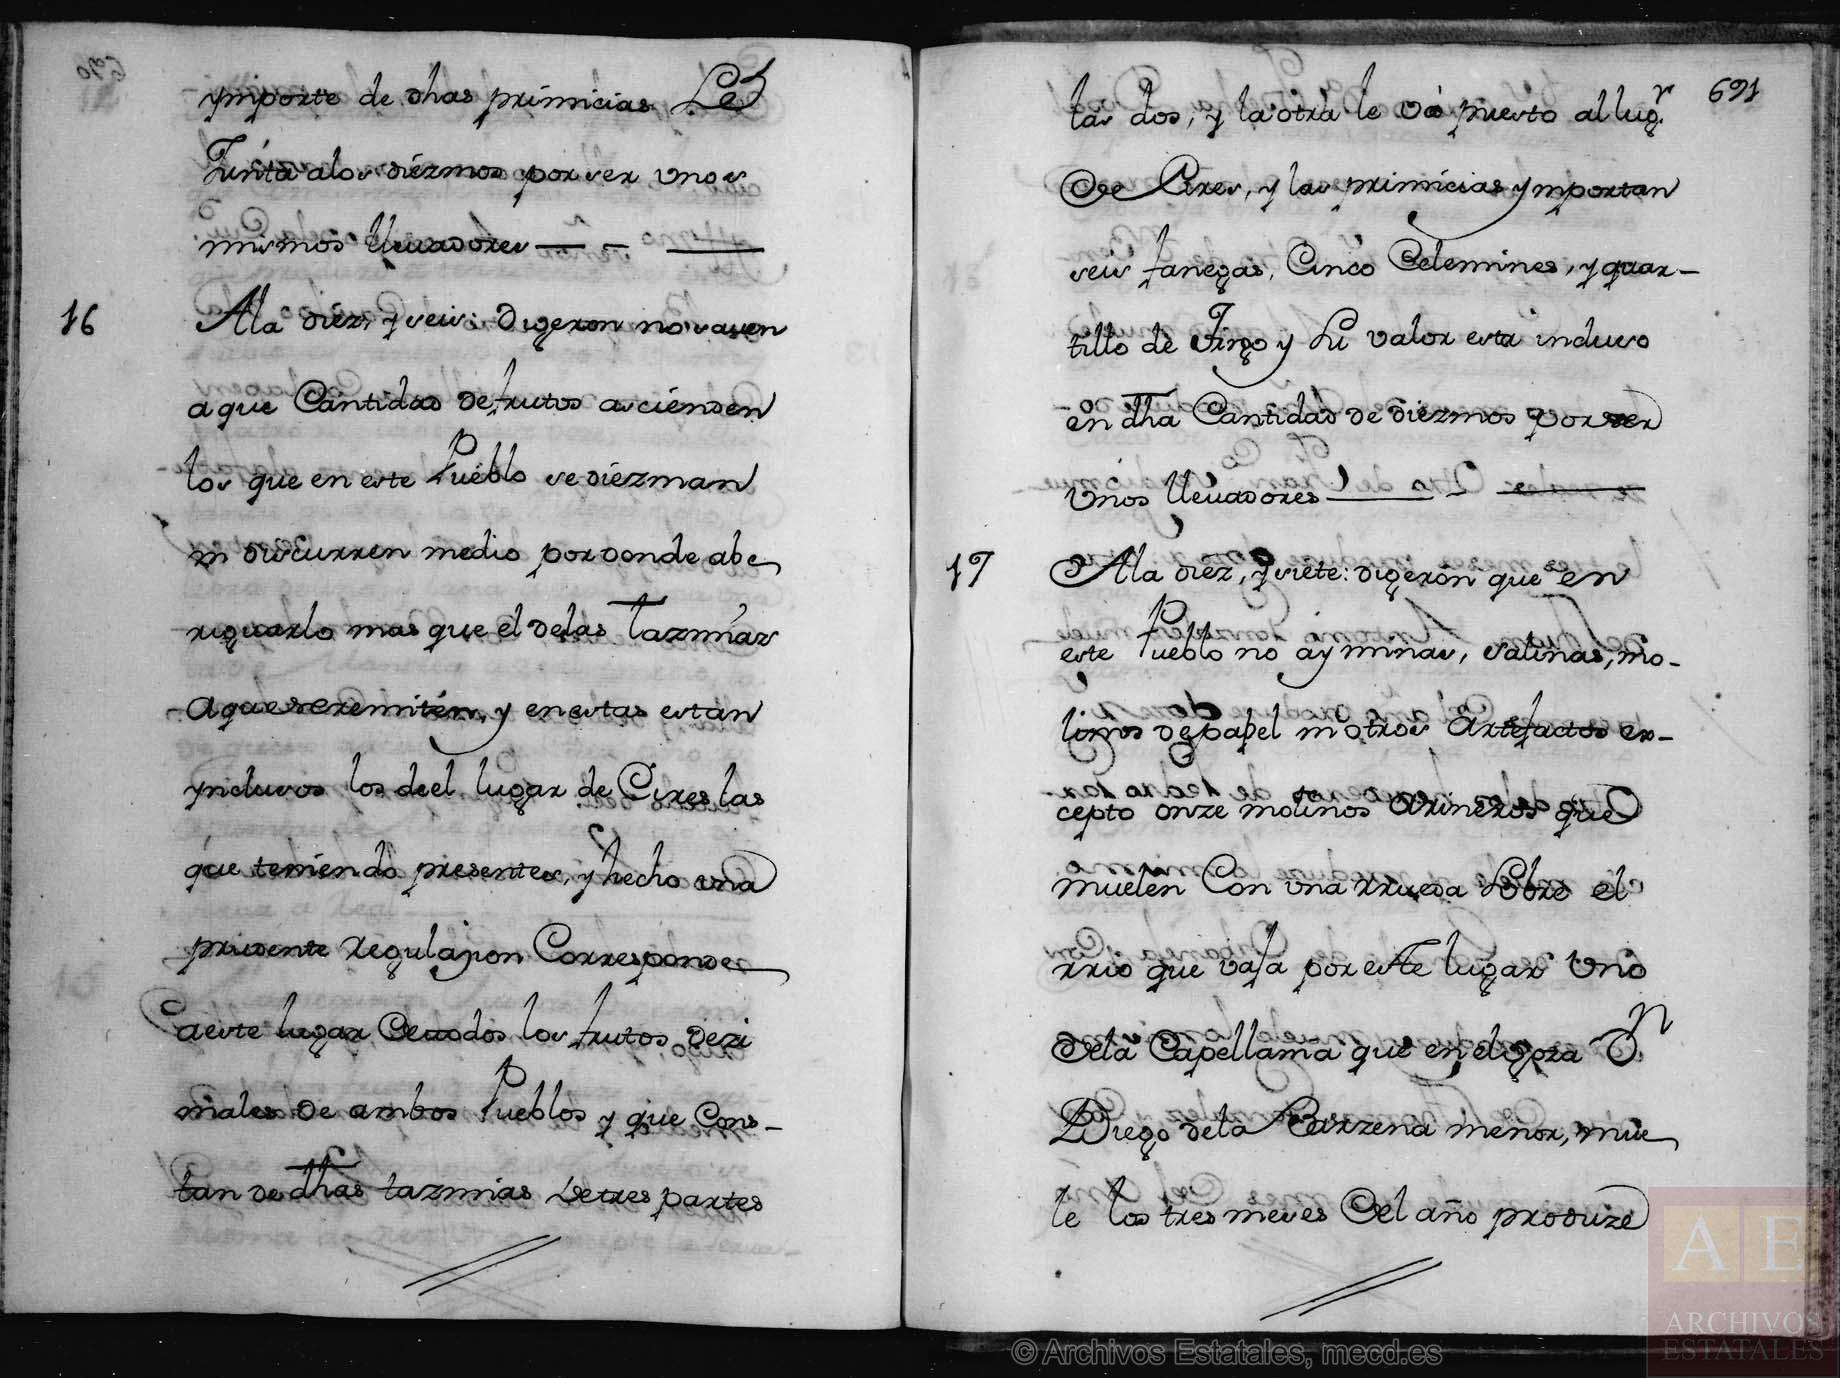 ymporte de dhas primicias Se
Junta alos diezmos por ser unos
mismos llevadores
16 Ala diez, y seis: digeron no saven
aque Cantidad de frutos ascienden
los que en este Pueblo se diezman
ni discurren medio por donde abe
riguarlo mas que el delas tazmias
aque se remiten, y en estas estan
ynclusos los deel lugar de Cires las
que teniendo presentes, y hecho una
prudente regulazion Corresponde
aeste lugar de todos los frutos dezi
males de ambos Pueblos y que Cons-
tan de dhas tazmias de tres partes
691
las dos, y la otra le va puesto al lugr
De Cires, y las primicias ymportan
seis fanegas, Cinco Zelemines, y quar-
tillo de Trigo y Su valor esta incluso
en dha Cantidad de diezmos por ser
unos llevadores
17 Ala diez, y siete: digeron que en
este Pueblo no ay minas, salinas, mo-
linos de papel ni otros Artefactos ex-
cepto onze molinos arineros que
muelen Con una rrueda Sobre el
rrio que vaja por este lugar uno
dela Capellania que en el goza Dn
Diego dela Barzena menor, mue
le los tres meses del año produze
ARCHIVOS
ESTATALES
© Archivos Estatales, mecd.es